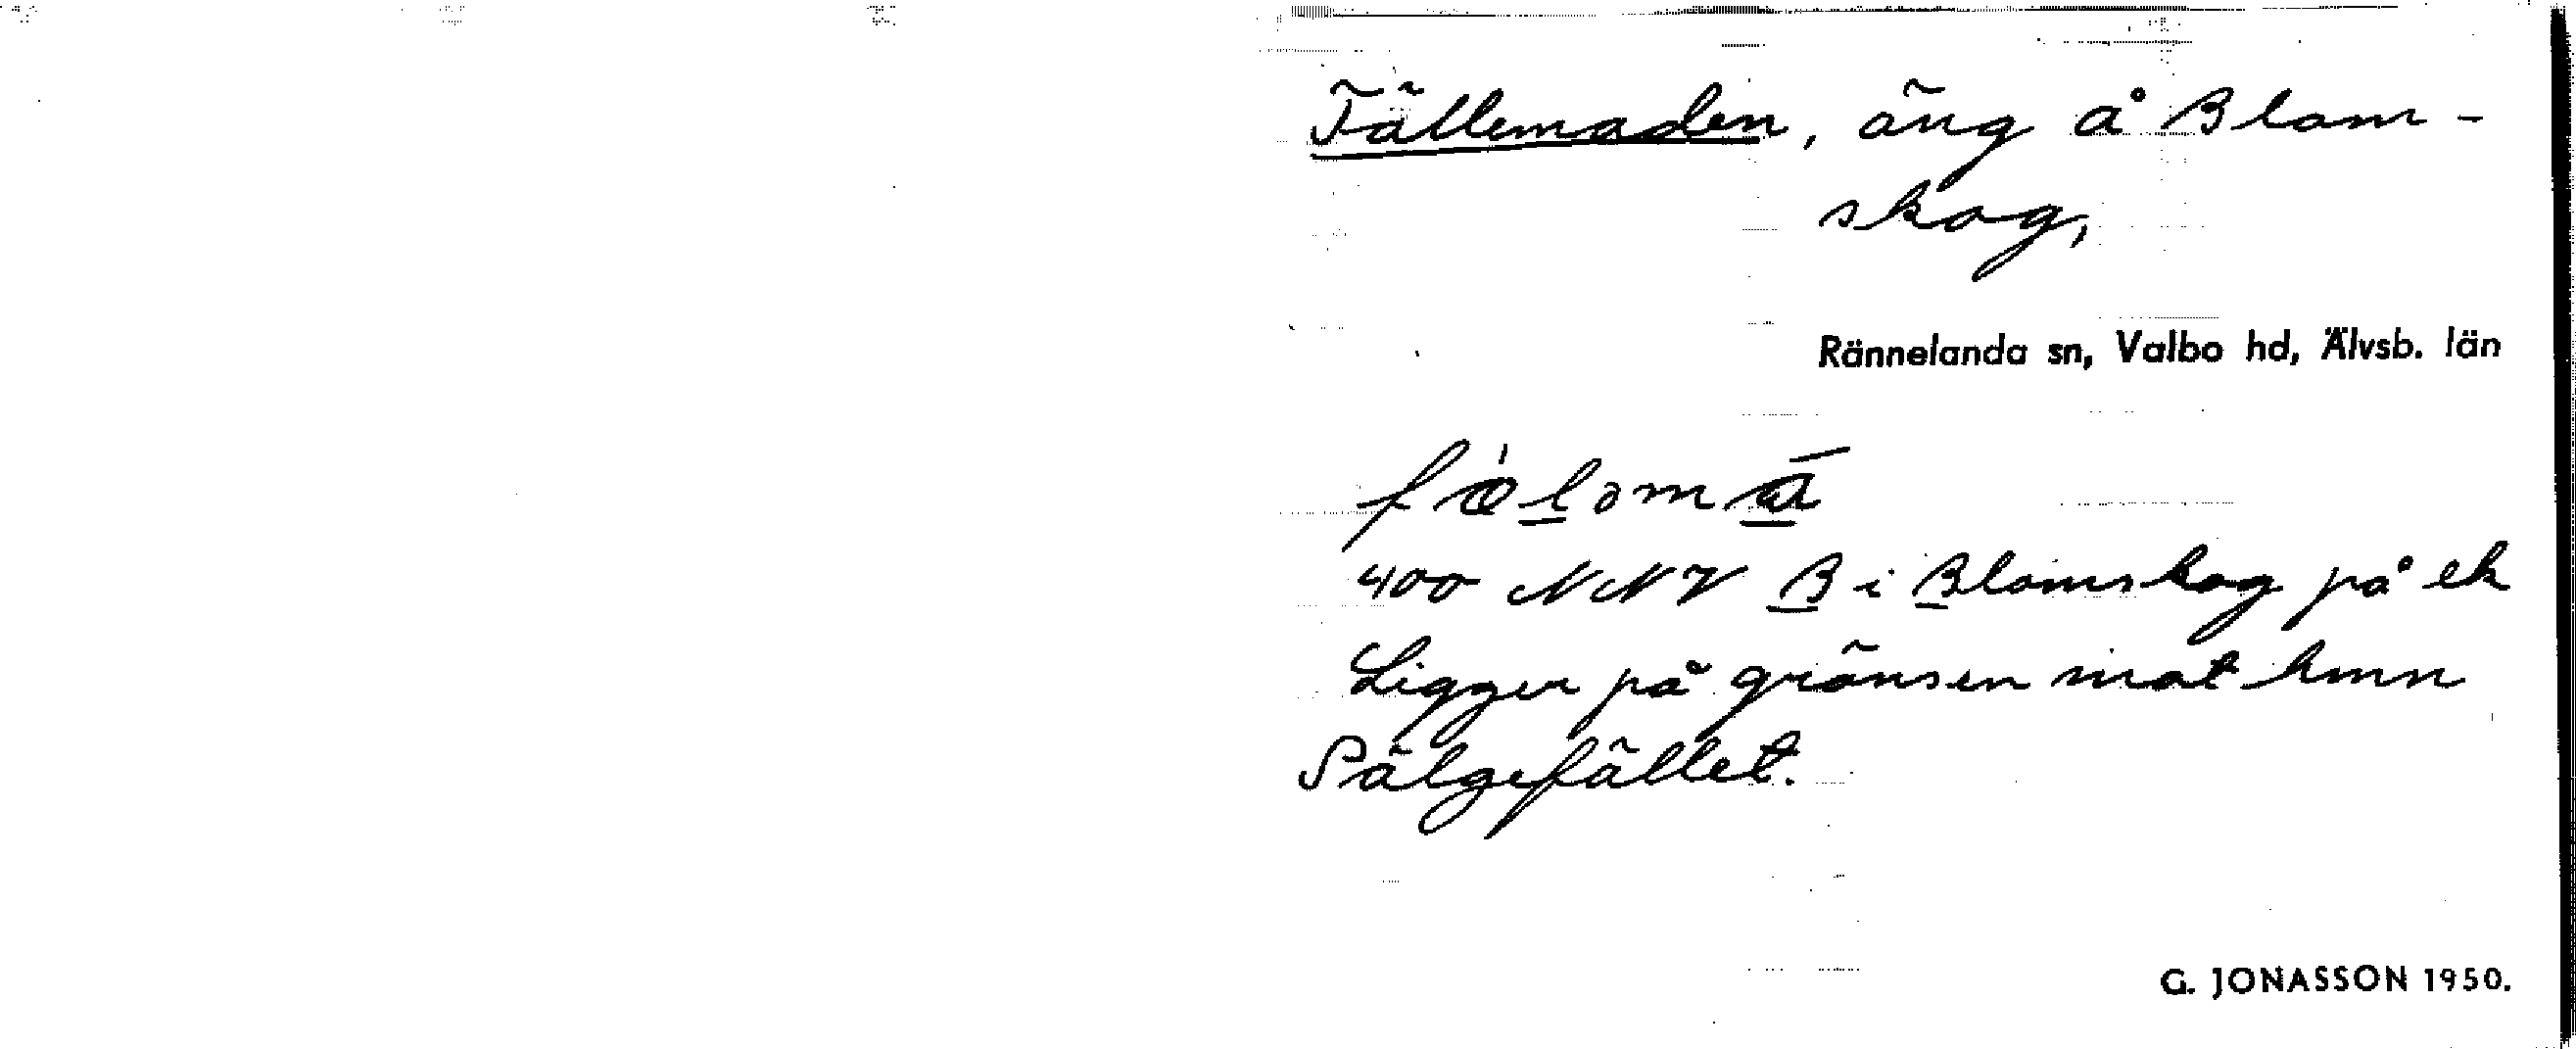 Fällemaden, äng å Blom-
skog,
Rännelanda sn, Valbo hd, Älvsb. län
400 NNV B i Blomskog på ek
Ligger på gränsen mot hmn
Sälgefället.
G. JONASSON 1950.